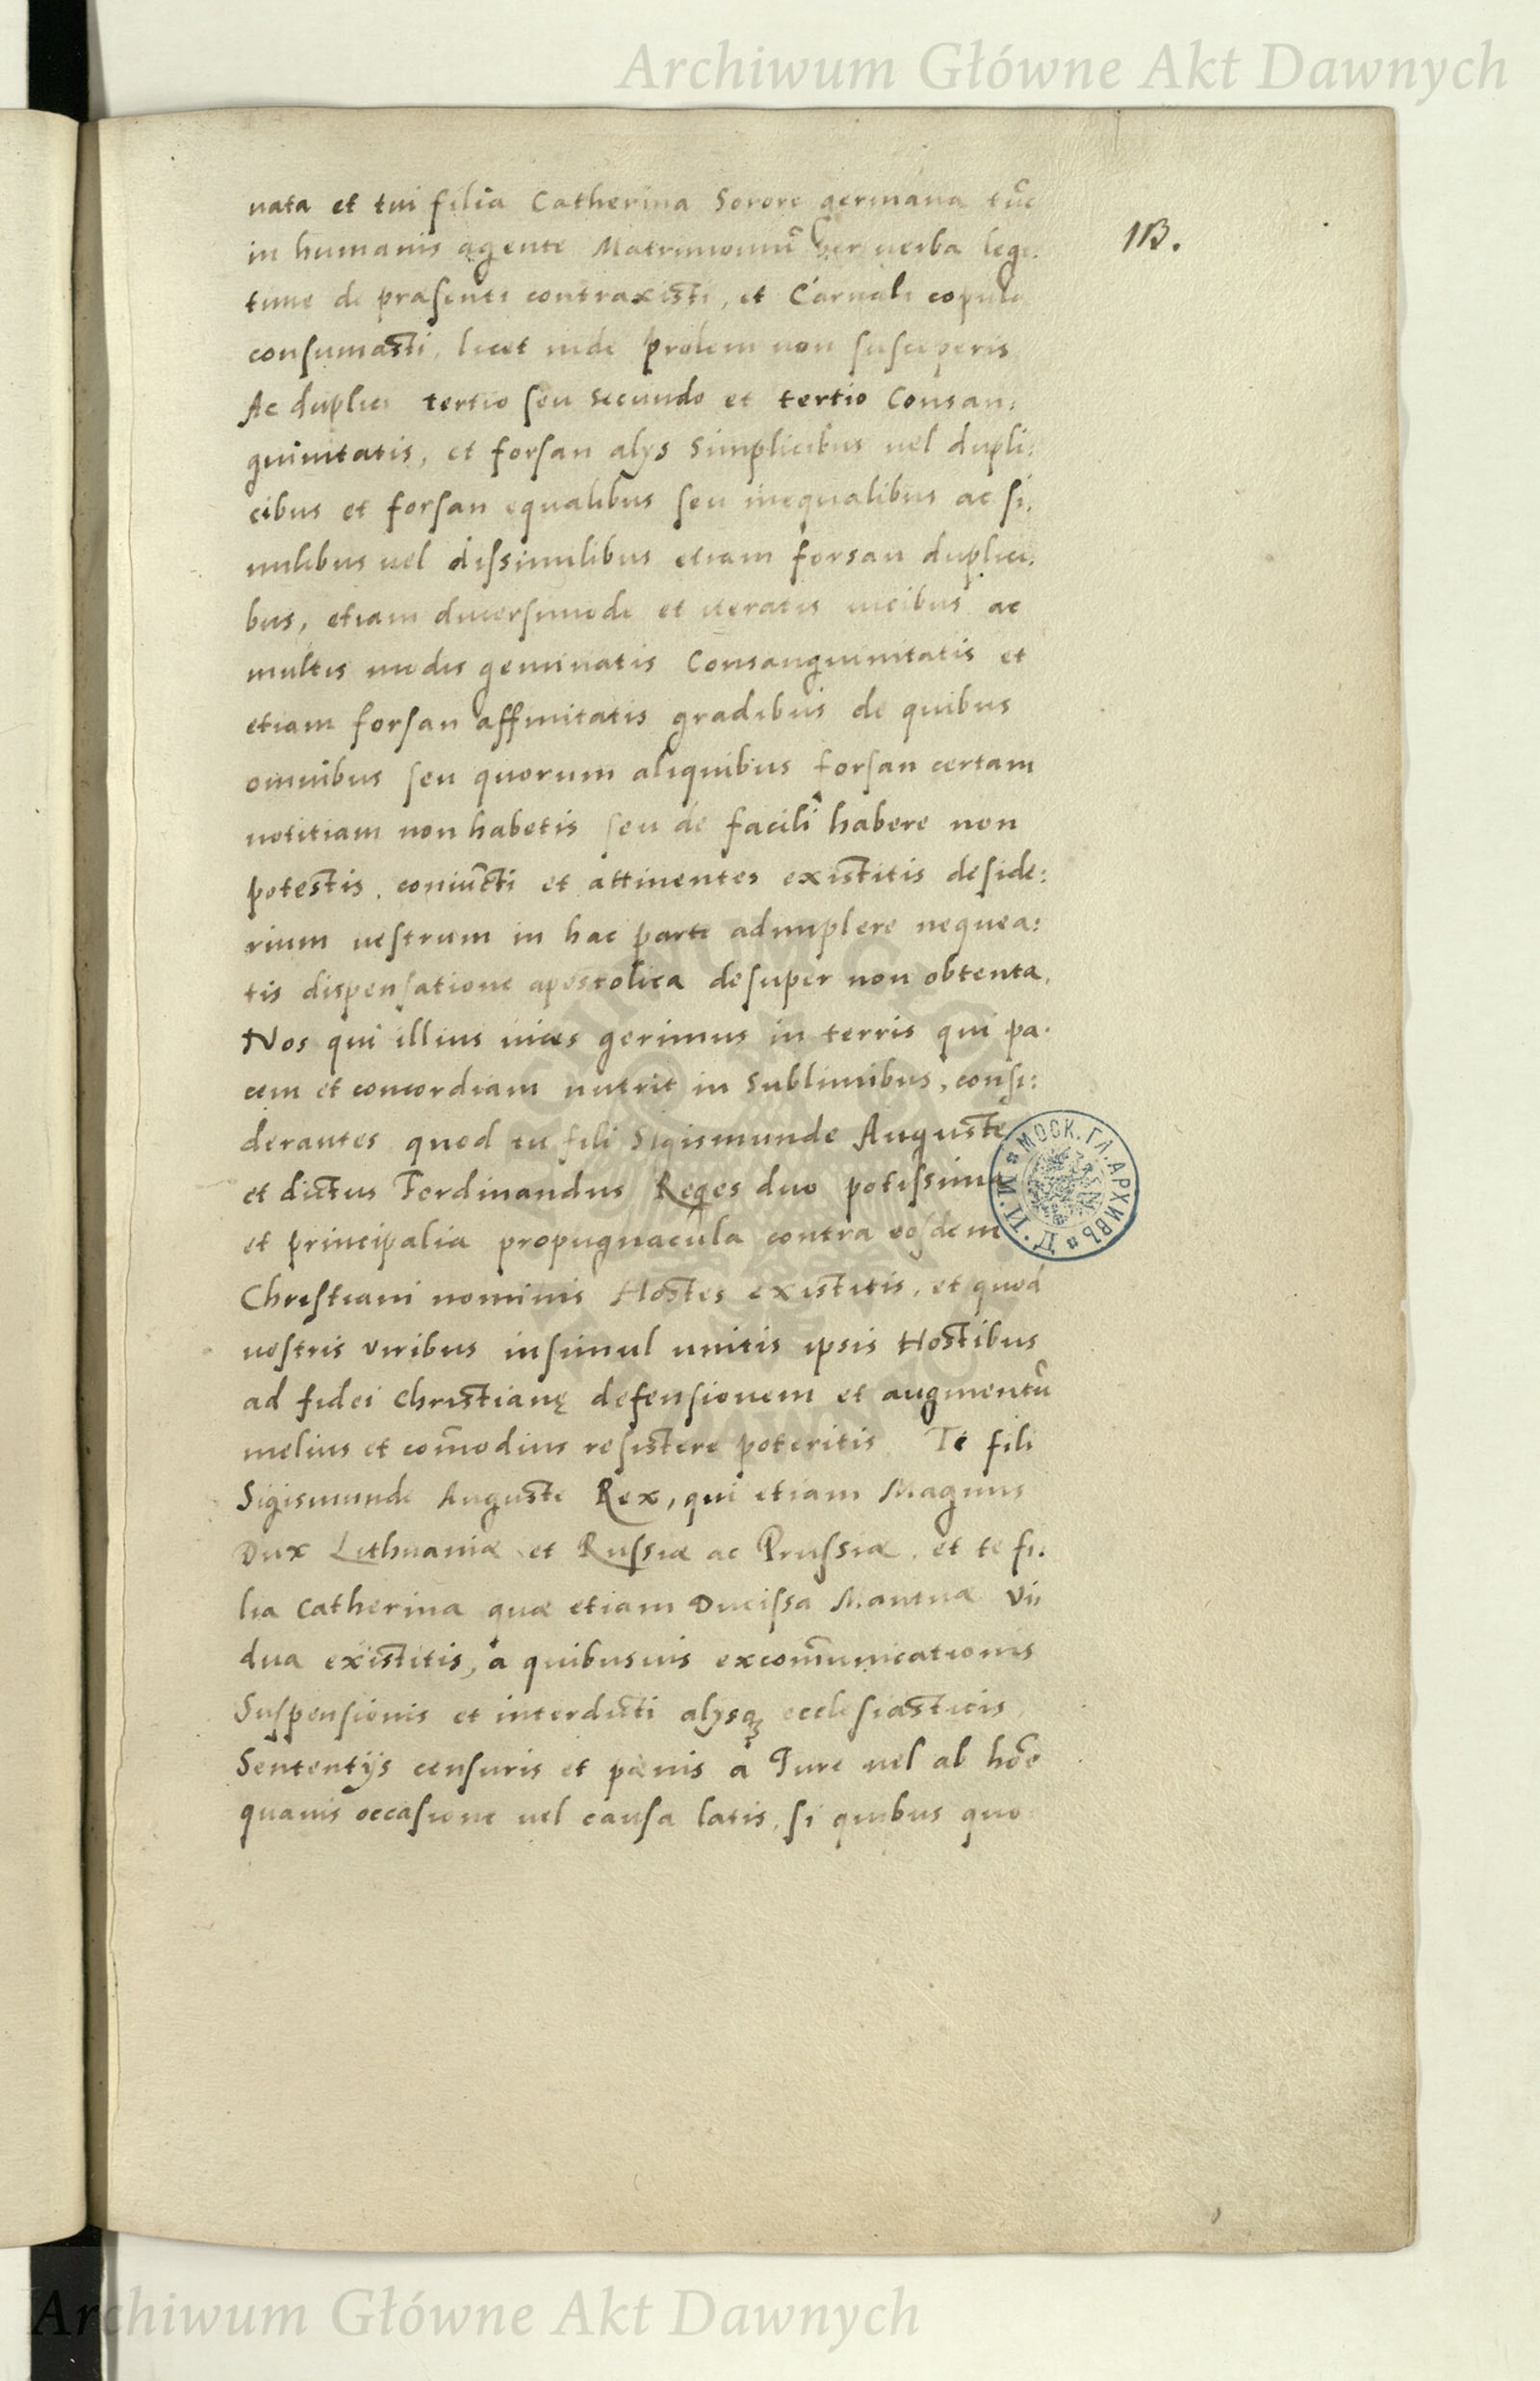 Archiwum Główne Akt Dawnych
113.
nata et tui filia Catherina Sorore germana tũc
in humanis agente Matrimoniũ per verba legi:
time de præsenti contraxisti, et Carnali copula
consumasti, licet inde prolem non susceperis
Ac duplici tertio seu secundo et tertio Consan:
guinitatis, et forsan alys Simplicibus vel dupli:
cibus et forsan equalibus seu inequalibus ac si:
milibus uel dissimilibus etiam forsan duplici:
bus, etiam diuersimode et iteratis uicibus ac
multis modis geminatis Consanguinitatis et
etiam forsan affinitatis gradibus de quibus
omnibus seu quorum aliquibus forsan certam
notitiam non habetis seu de facili habere non
potestis, coniũcti et attinentes existitis deside:
rium uestrum in hac parte adimplere nequea:
tis dispensatione apostolica desuper non obtenta.
Nos qui illius uices gerimus in terris qui pa:
cem et concordiam nutrit in Sublimibus, consi:
derantes quod tu fili Sigismunde Auguste
et dictus Ferdinandus Reges duo potissima
et principalia propugnacula contra eosdem
Christiani nominis Hostes existitis, et quod
uestris viribus insimul unitis ipsis Hostibus
ad fidei Christianę defensionem et augmentũ
melius et com̃odius resistere poteritis Te fili
Sigismunde Auguste Rex, qui etiam Magnus
Dux Lithuaniæ et Russiæ ac Prussiæ, et te fi:
lia Catherina quæ etiam Ducissa Mantuæ Vi:
dua existitis, à quibusuis excom̃unicationis
Suspensionis et interdicti alysq; ecclesiasticis
Sententÿs censuris et pœnis à Iure uel ab hõe
quauis occasione uel causa latis, si quibus quo
МОСК. ГЛ. АРХИВЪ М. И. Д.
Archiwum Główne Akt Dawnych